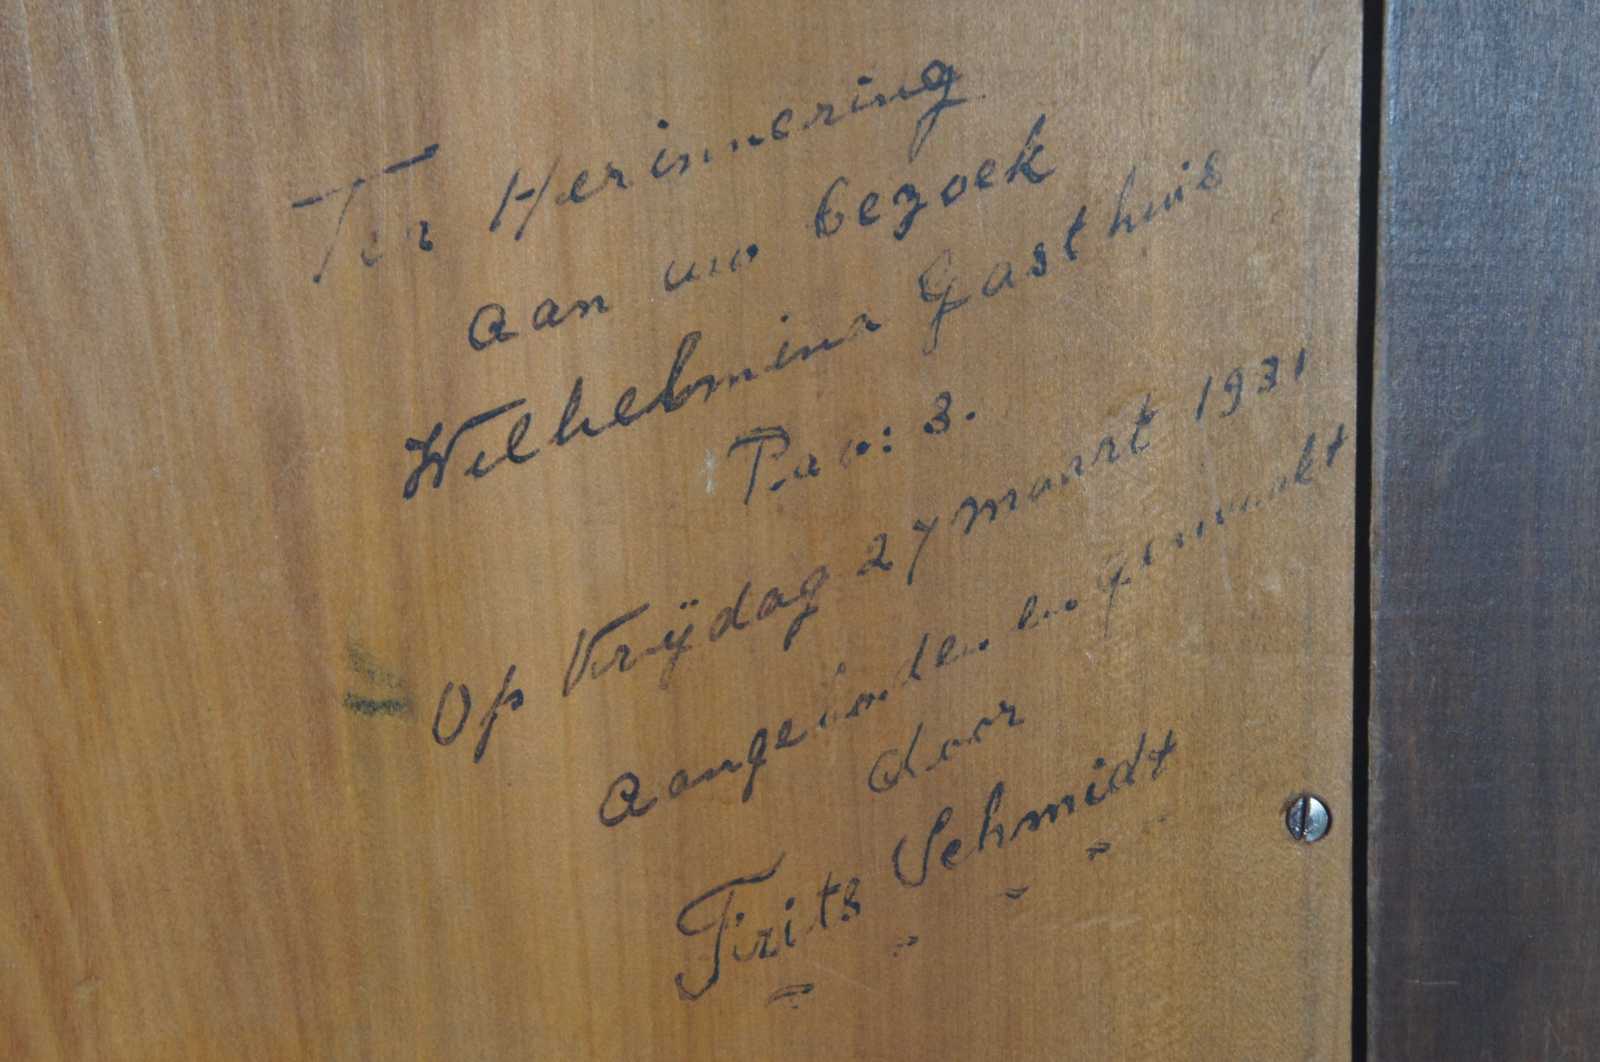 Ter Herinnering
aan uw bezoek
Wilhelmina Gasthuis
Pav: 3.
Op Vrijdag 27 maart 1931
aangeboden en gemaakt
door
Frits Schmidt